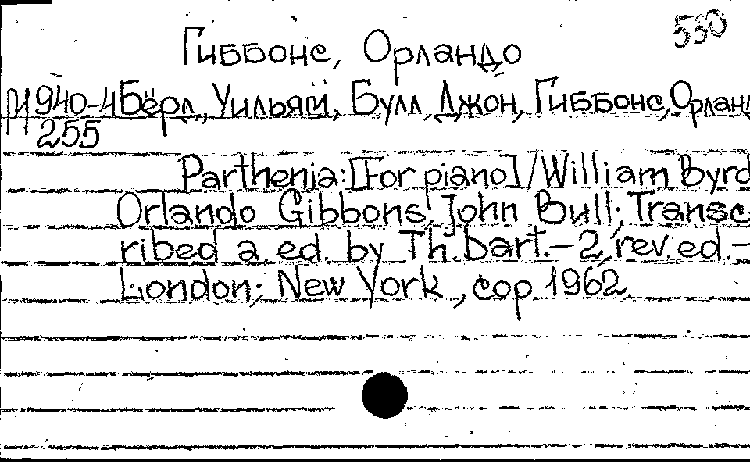 530
Гиббонс, Орландо
М 940-4 Бёрд, Уильям, Булл Джон, Гиббонс, Орланд
255
Parthenia: [For piano] / William Byrd
Orlando Gibbons, John Bull; Transc
ribed a. ed. by Th. Dart. – 2 rev. ed. –
London; New York, cop 1962